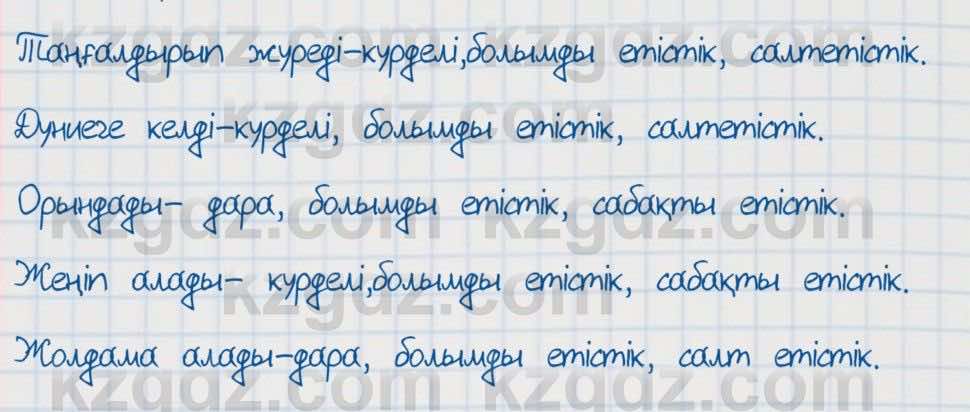 Таңғалдырып жүреді-күрделі,болымды етістік, салтетістік.
Дүниеге келді-күрделі, болымды етістік, салтетістік.
Орындады- дара, болымды етістік, сабақты етістік.
Жеңіп алады- күрделі,болымды етістік, сабақты етістік.
Жолдама алады-дара, болымды етістік, салт етістік.